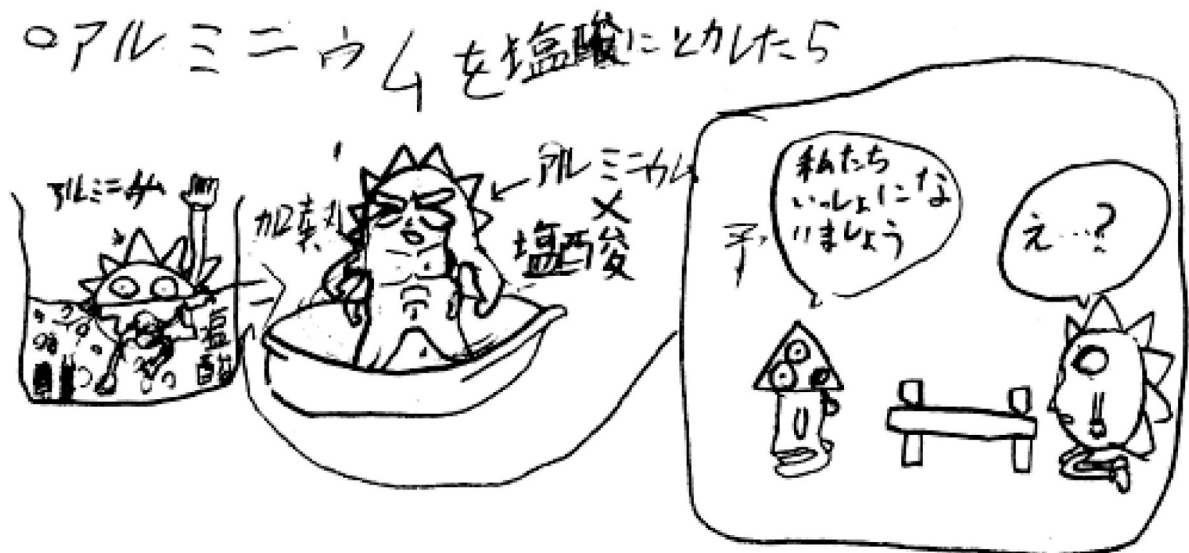 ○アルミニウムを塩酸にとかしたら
アルミニウム
塩酸
加熱
アルミニウム
×
塩酸
私たち
いっしょにな
いましょう
え…?